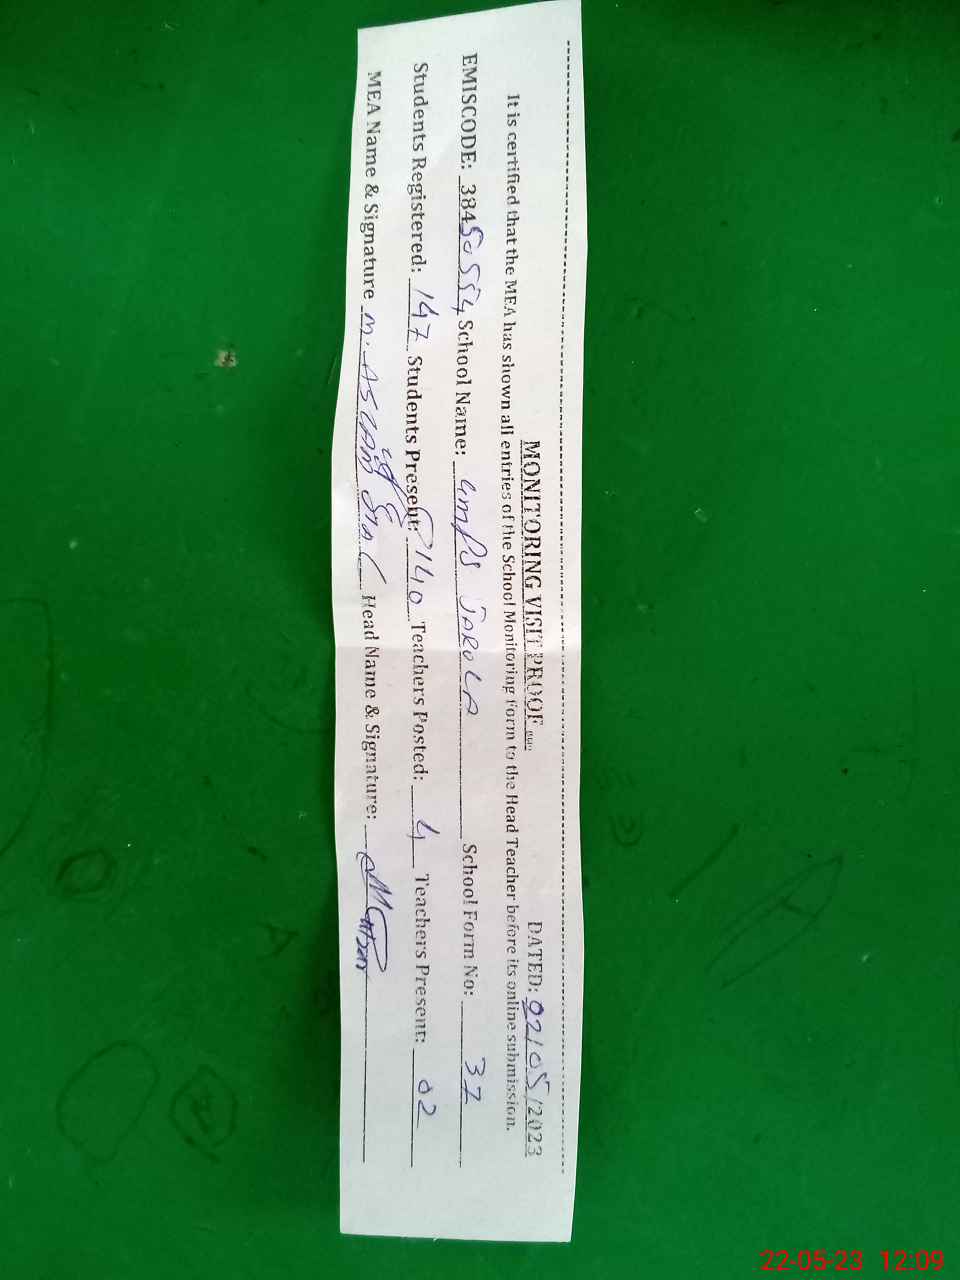 MONITORING VISIT PROOF DATED: 02/05/2023
It is certified that the MEA has shown all entries of the School Monitoring Form to the Head Teacher before its online submission.
EMISCODE: 38450554 School Name: GMPS JAROLA School Form No: 37
Students Registered: 147 Students Present: 140 Teachers Posted: 4 Teachers Present: 02
MEA Name & Signature M. ASLAM Head Name & Signature:
22-05-23 12:09